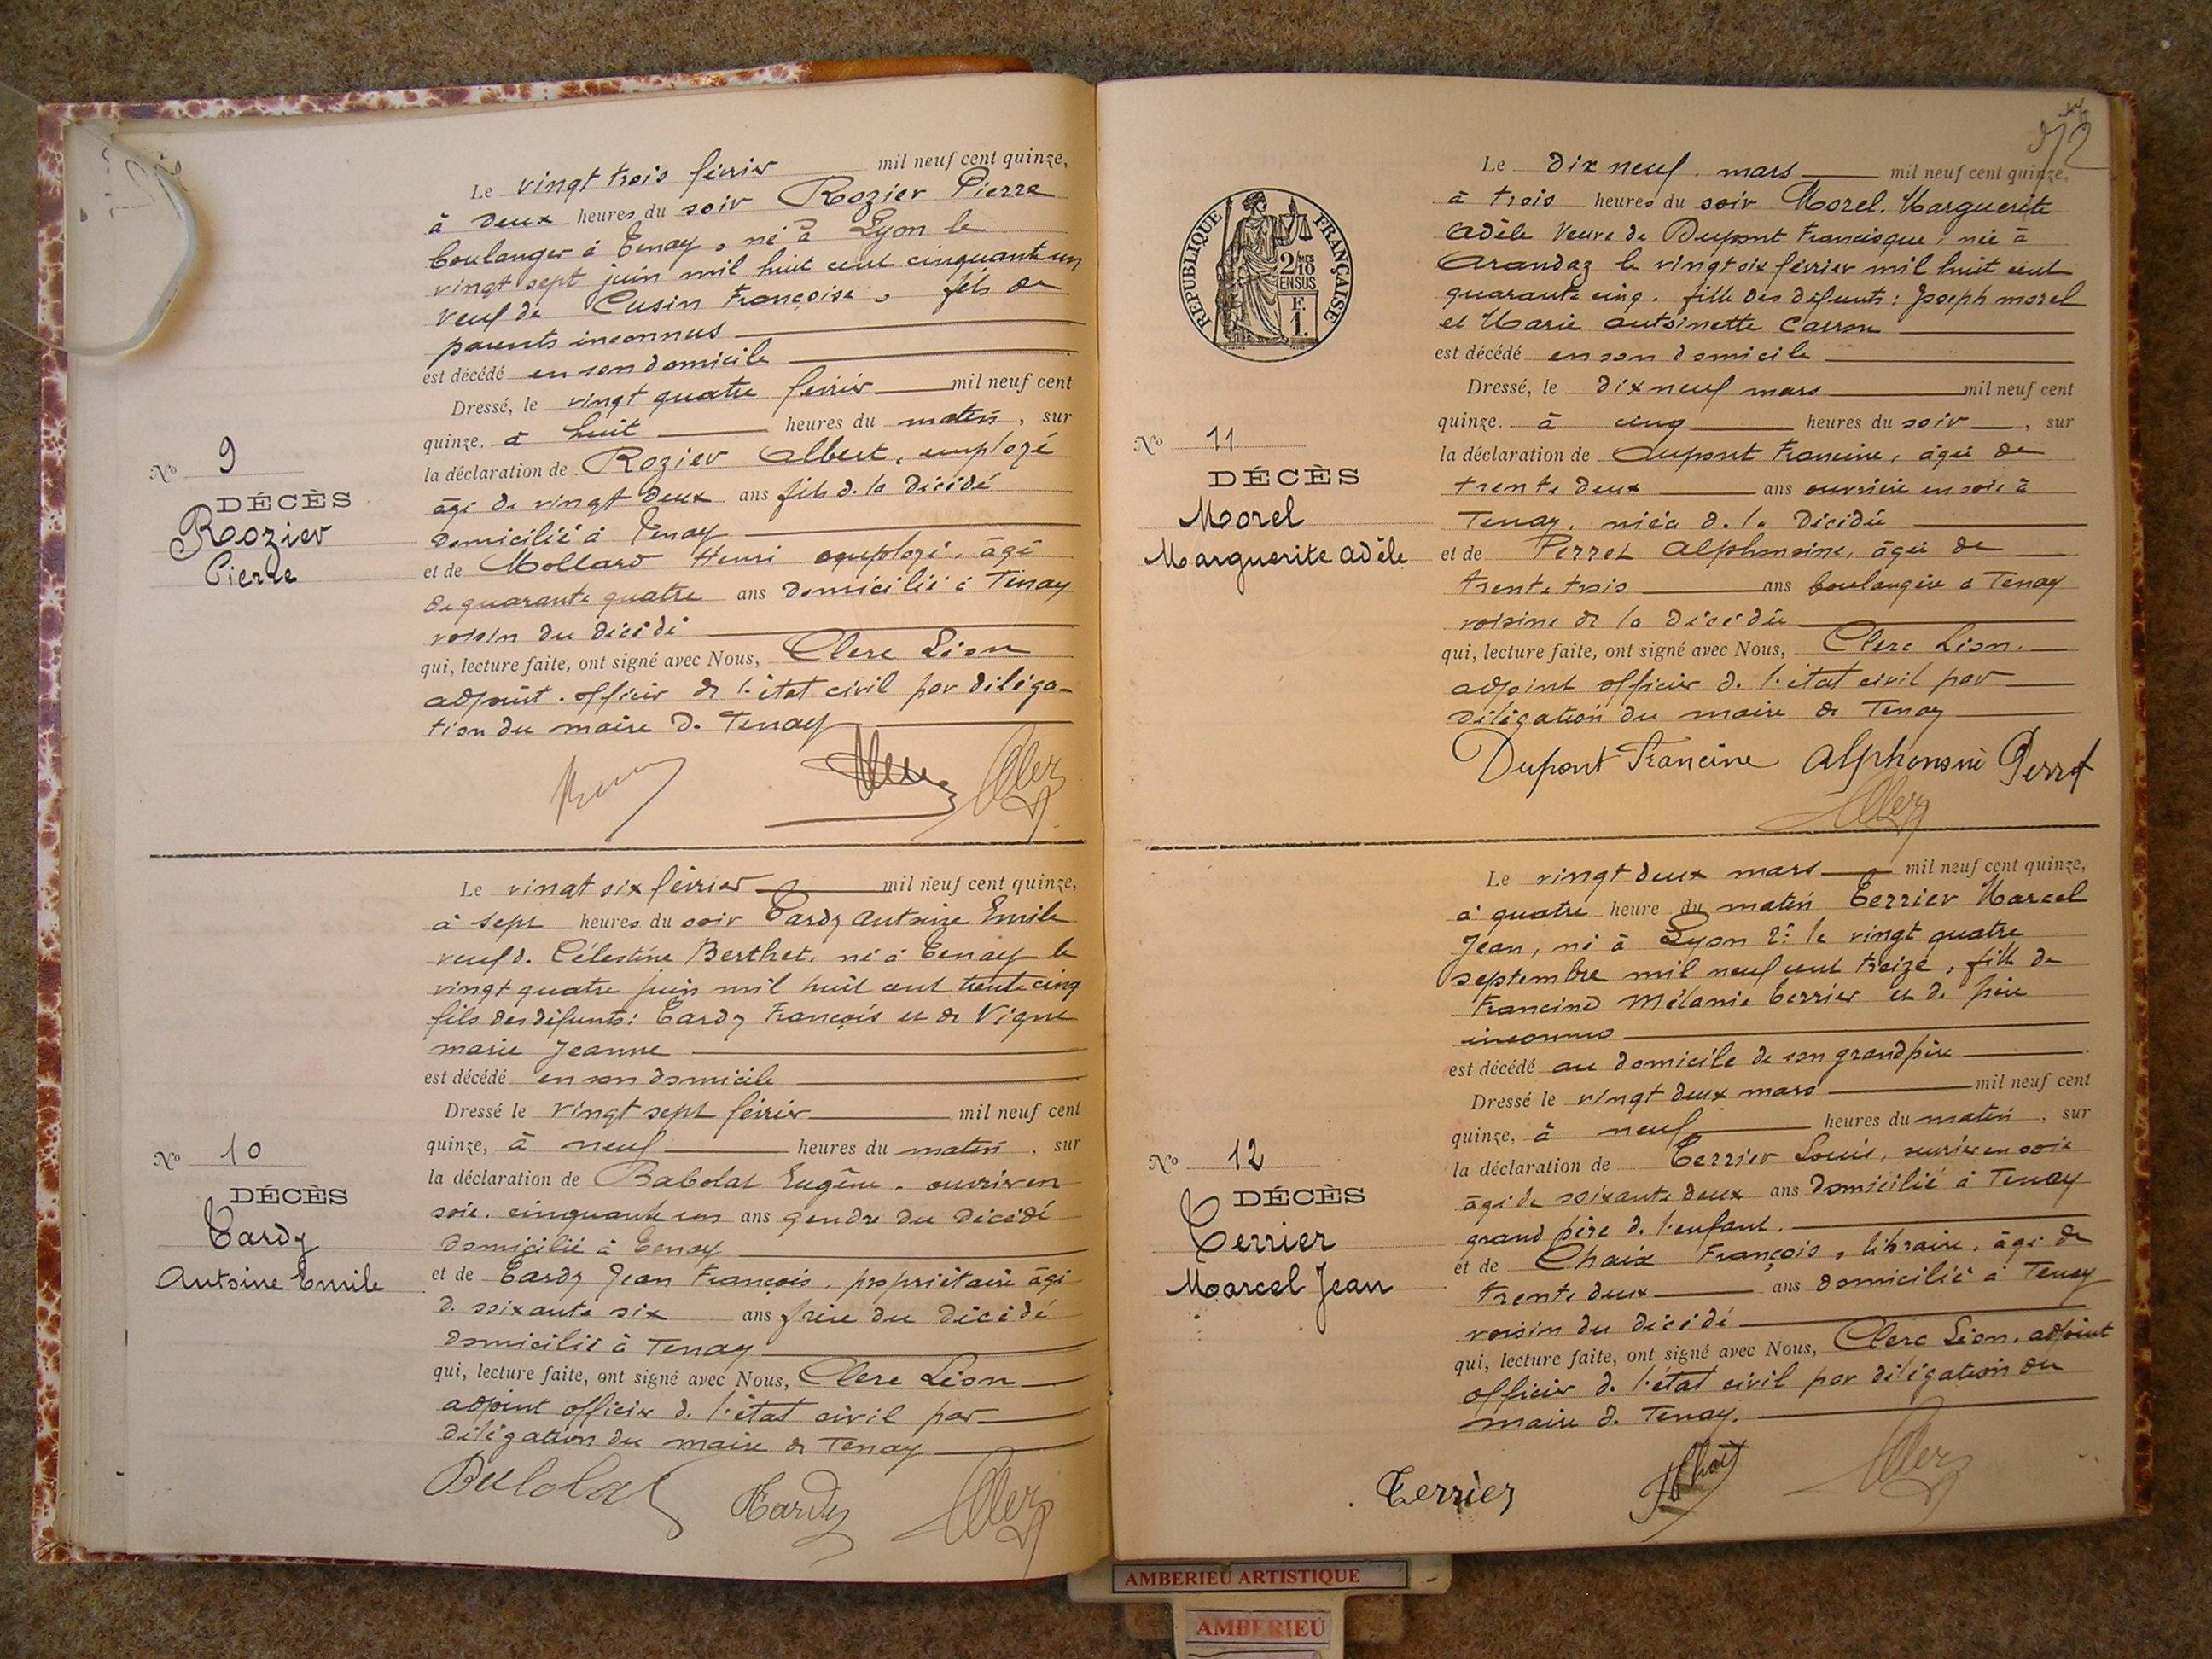 Le vingt trois février mil neuf cent quinze,
à deux heures du soir Rozier Pierre
boulanger à Tenay, né à Lyon le
vingt sept juin mil huit cent cinquante un
veuf de Cusin Françoise, fils de
parents inconnus
est décédé en son domicile
Dressé, le vingt quatre février mil neuf cent
quinze, à huit heures du matin, sur
la déclaration de Rozier Albert, employé
âgé de vingt deux ans fils de la décédé
domicilié à Tenay
et de Mollard Henri employé, âgé
de quarante quatre ans domicilié à Tenay
voisin du décédé
qui, lecture faite, ont signé avec Nous, Clerc Léon
adjoint. officier de l'état civil par déléga-
tion du maire de Tenay
No 9
DÉCÈS
Rozier
Pierre
Le vingt six février mil neuf cent quinze,
à sept heures du soir Tardy Antoine Emile
veuf de Célestine Berthet, né à Tenay le
vingt quatre juin mil huit cent trente cinq
fils des défunts: Tardy François et de Vigne
marie Jeanne
est décédé en son domicile
Dressé le vingt sept février mil neuf cent
quinze, à neuf heures du matin, sur
la déclaration de Babolat Eugène, ouvrier en
soie, cinquante un ans gendre du décédé
domicilié à Tenay
et de Tardy Jean François, propriétaire âgé
de soixante six ans frère du décédé
domicilié à Tenay
qui, lecture faite, ont signé avec Nous, Clerc Léon
adjoint officier de l'état civil par
délégation du maire de Tenay
Babolat Tardy Clerc
No 10
DÉCÈS
Tardy
Antoine Emile
RÉPUBLIQUE FRANÇAISE
2/10MES
EN SUS
F.
1.
Le dix neuf mars mil neuf cent quinze,
à trois heures du soir Morel Marguerite
Adèle Veuve de Dupont Francisque, née à
Arandaz le vingt six février mil huit cent
quarante cinq, fille des défunts: Joseph morel
et Marie Antoinette Carron
est décédé en son domicile
Dressé, le dix neuf mars mil neuf cent
quinze, à cinq heures du soir, sur
la déclaration de Dupont Francine, âgée de
trente deux ans ouvrière en soie à
Tenay, nièce de la décédée
et de Perret Alphonsine, âgée de
trente trois ans boulangère à Tenay
voisine de la décédée
qui, lecture faite, ont signé avec Nous, Clerc Léon.
adjoint officier de l'état civil par
délégation du maire de Tenay
Dupont Francine Alphonsine Perret
Clerc
No 11
DÉCÈS
Morel
Marguerite Adèle
Le vingt deux mars mil neuf cent quinze,
à quatre heure du matin Terrier Marcel
Jean, né à Lyon 2e le vingt quatre
septembre mil neuf cent treize, fils de
Francine Mélanie Terrier et de père
inconnu
est décédé au domicile de son grand père
Dressé le vingt deux mars mil neuf cent
quinze, à neuf heures du matin, sur
la déclaration de Terrier Louis, ouvrier en soie
âgé de soixante deux ans domicilié à Tenay
grand père de l'enfant.
et de Chaix François, libraire, âgé de
trente deux ans domicilié à Tenay
voisin du décédé
qui, lecture faite, ont signé avec Nous, Clerc Léon, adjoint
officier de l'état civil par délégation du
maire de Tenay.
Terrier Chaix Clerc
No 12
DÉCÈS
Terrier
Marcel Jean
AMBERIEU ARTISTIQUE
AMBERIEU